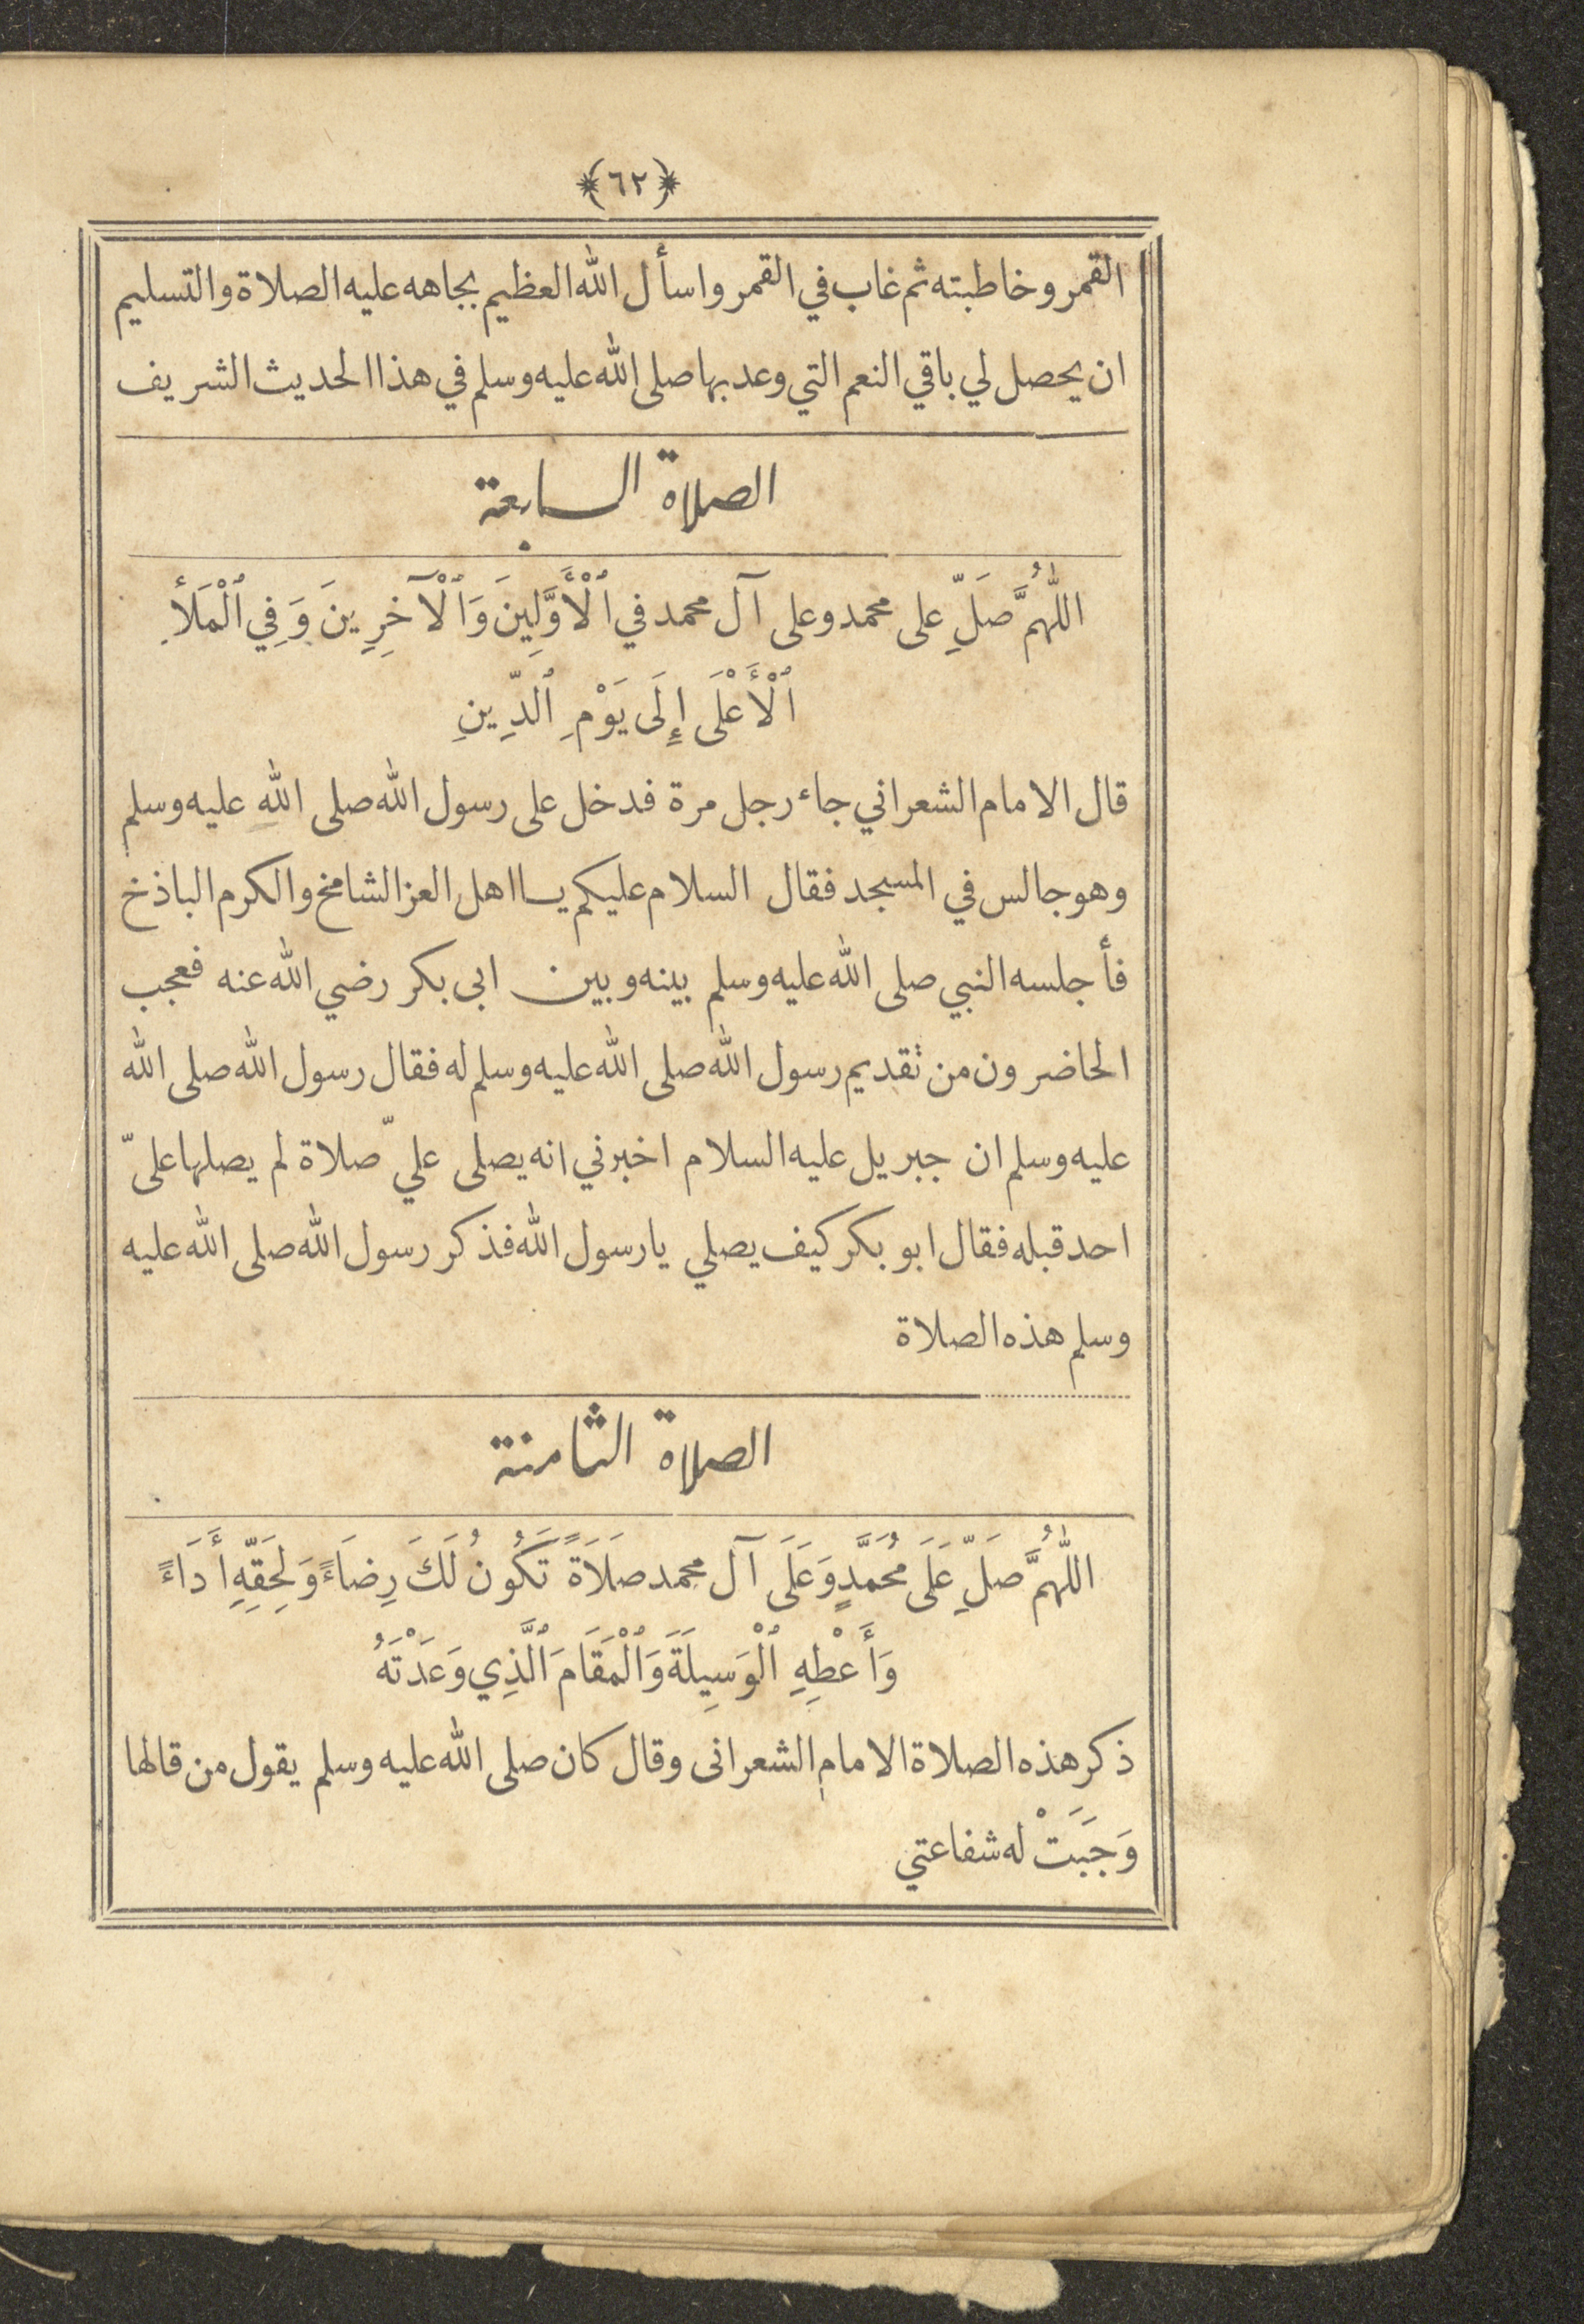 ﴿٦٢﴾
القمر وخاطبته ثم غاب في القمر واسأل الله العظيم بجاهه عليه الصلاة والتسليم
ان يحصل لي باقي النعم التي وعد بها صلى الله عليه وسلم في هذا الحديث الشريف
الصلاة السابعة
اللّٰهُمَّ صَلِّ على محمد وعلى آل محمد في ٱلْأَوَّلِينَ وَٱلْآخِرِينَ وَفِي ٱلْمَلَأِ
ٱلْأَعْلَى إِلَى يَوْمِ ٱلدِّينِ
قال الامام الشعراني جاء رجل مرة فدخل على رسول الله صلى الله عليه وسلم
وهو جالس في المسجد فقال السلام عليكم يا اهل العز الشامخ والكرم الباذخ
فأجلسه النبي صلى الله عليه وسلم بينه وبين ابى بكر رضي الله عنه فعجب
الحاضرون من تقديم رسول الله صلى الله عليه وسلم له فقال رسول الله صلى الله
عليه وسلم ان جبريل عليه السلام اخبرني انه يصلى عليّ صلاة لم يصلها علىّ
احد قبله فقال ابو بكر كيف يصلي يا رسول الله فذكر رسول الله صلى الله عليه
وسلم هذه الصلاة
الصلاة الثامنة
اللّٰهُمَّ صَلِّ عَلَى مُحَمَّدٍ وَعَلَى آل محمد صَلَاَةً تَكُونُ لَكَ رِضَاءً وَلِحَقِّهِ أَدَاءً
وَأَعْطِهِ ٱلْوَسِيلَةَ وَٱلْمَقَامَ ٱلَّذِي وَعَدْتَهُ
ذكر هذه الصلاة الامام الشعرانى وقال كان صلى الله عليه وسلم يقول من قالها
وَجَبَتْ له شفاعتي